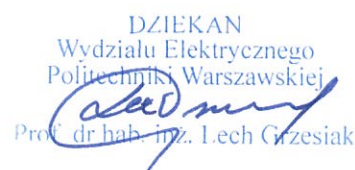 DZIEKAN
Wydziału Elektrycznego
Politechniki Warszawskiej
Prof. dr hab. inż. Lech Grzesiak